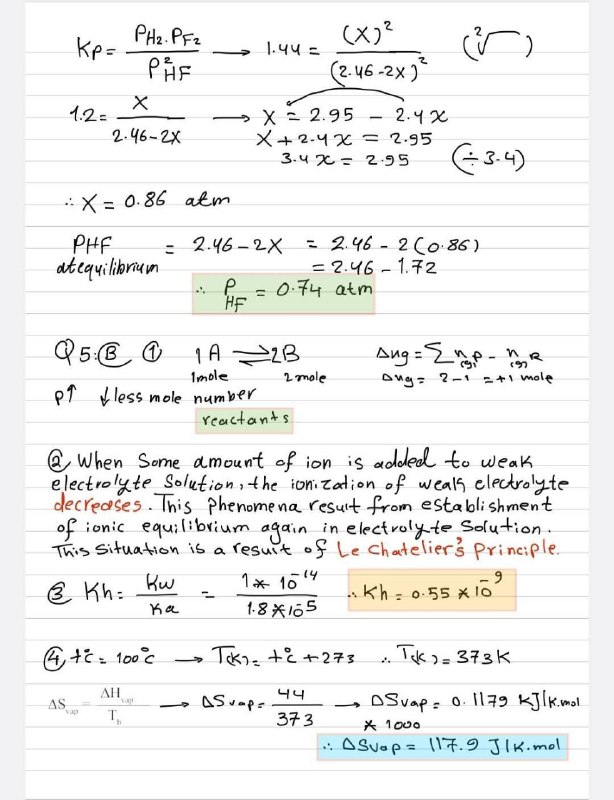 Kp = PH2 . PF2 / P²HF → 1.44 = (X)² / (2.46-2X)² (²√ )
1.2 = X / 2.46-2X → X = 2.95 - 2.4X
X + 2.4X = 2.95
3.4X = 2.95 (÷3.4)
∴ X = 0.86 atm
PHF at equilibrium = 2.46 - 2X = 2.46 - 2(0.86)
= 2.46 - 1.72
∴ PHF = 0.74 atm
Q5:Ⓑ ① 1A ⇌ 2B Δng = Σ n(g)P - n(g)R
1mole 2mole Δng = 2-1 = +1 mole
P↑ ↓less mole number
reactants
② When Some amount of ion is added to weak
electrolyte Solution, the ionization of weak electrolyte
decreases. This phenomena result from establishment
of ionic equilibrium again in electrolyte Solution.
This Situation is a result of Le Chatelier's Principle.
③ Kh = Kw / Ka = 1*10⁻¹⁴ / 1.8*10⁻⁵ ∴ Kh = 0.55*10⁻⁹
④ t°C = 100°C → T(K) = t°C + 273 ∴ T(K) = 373K
ΔSvap = ΔHvap / Tb → ΔSvap = 44 / 373 → ΔSvap = 0.1179 KJ/K.mol
* 1000
∴ ΔSvap = 117.9 J/K.mol